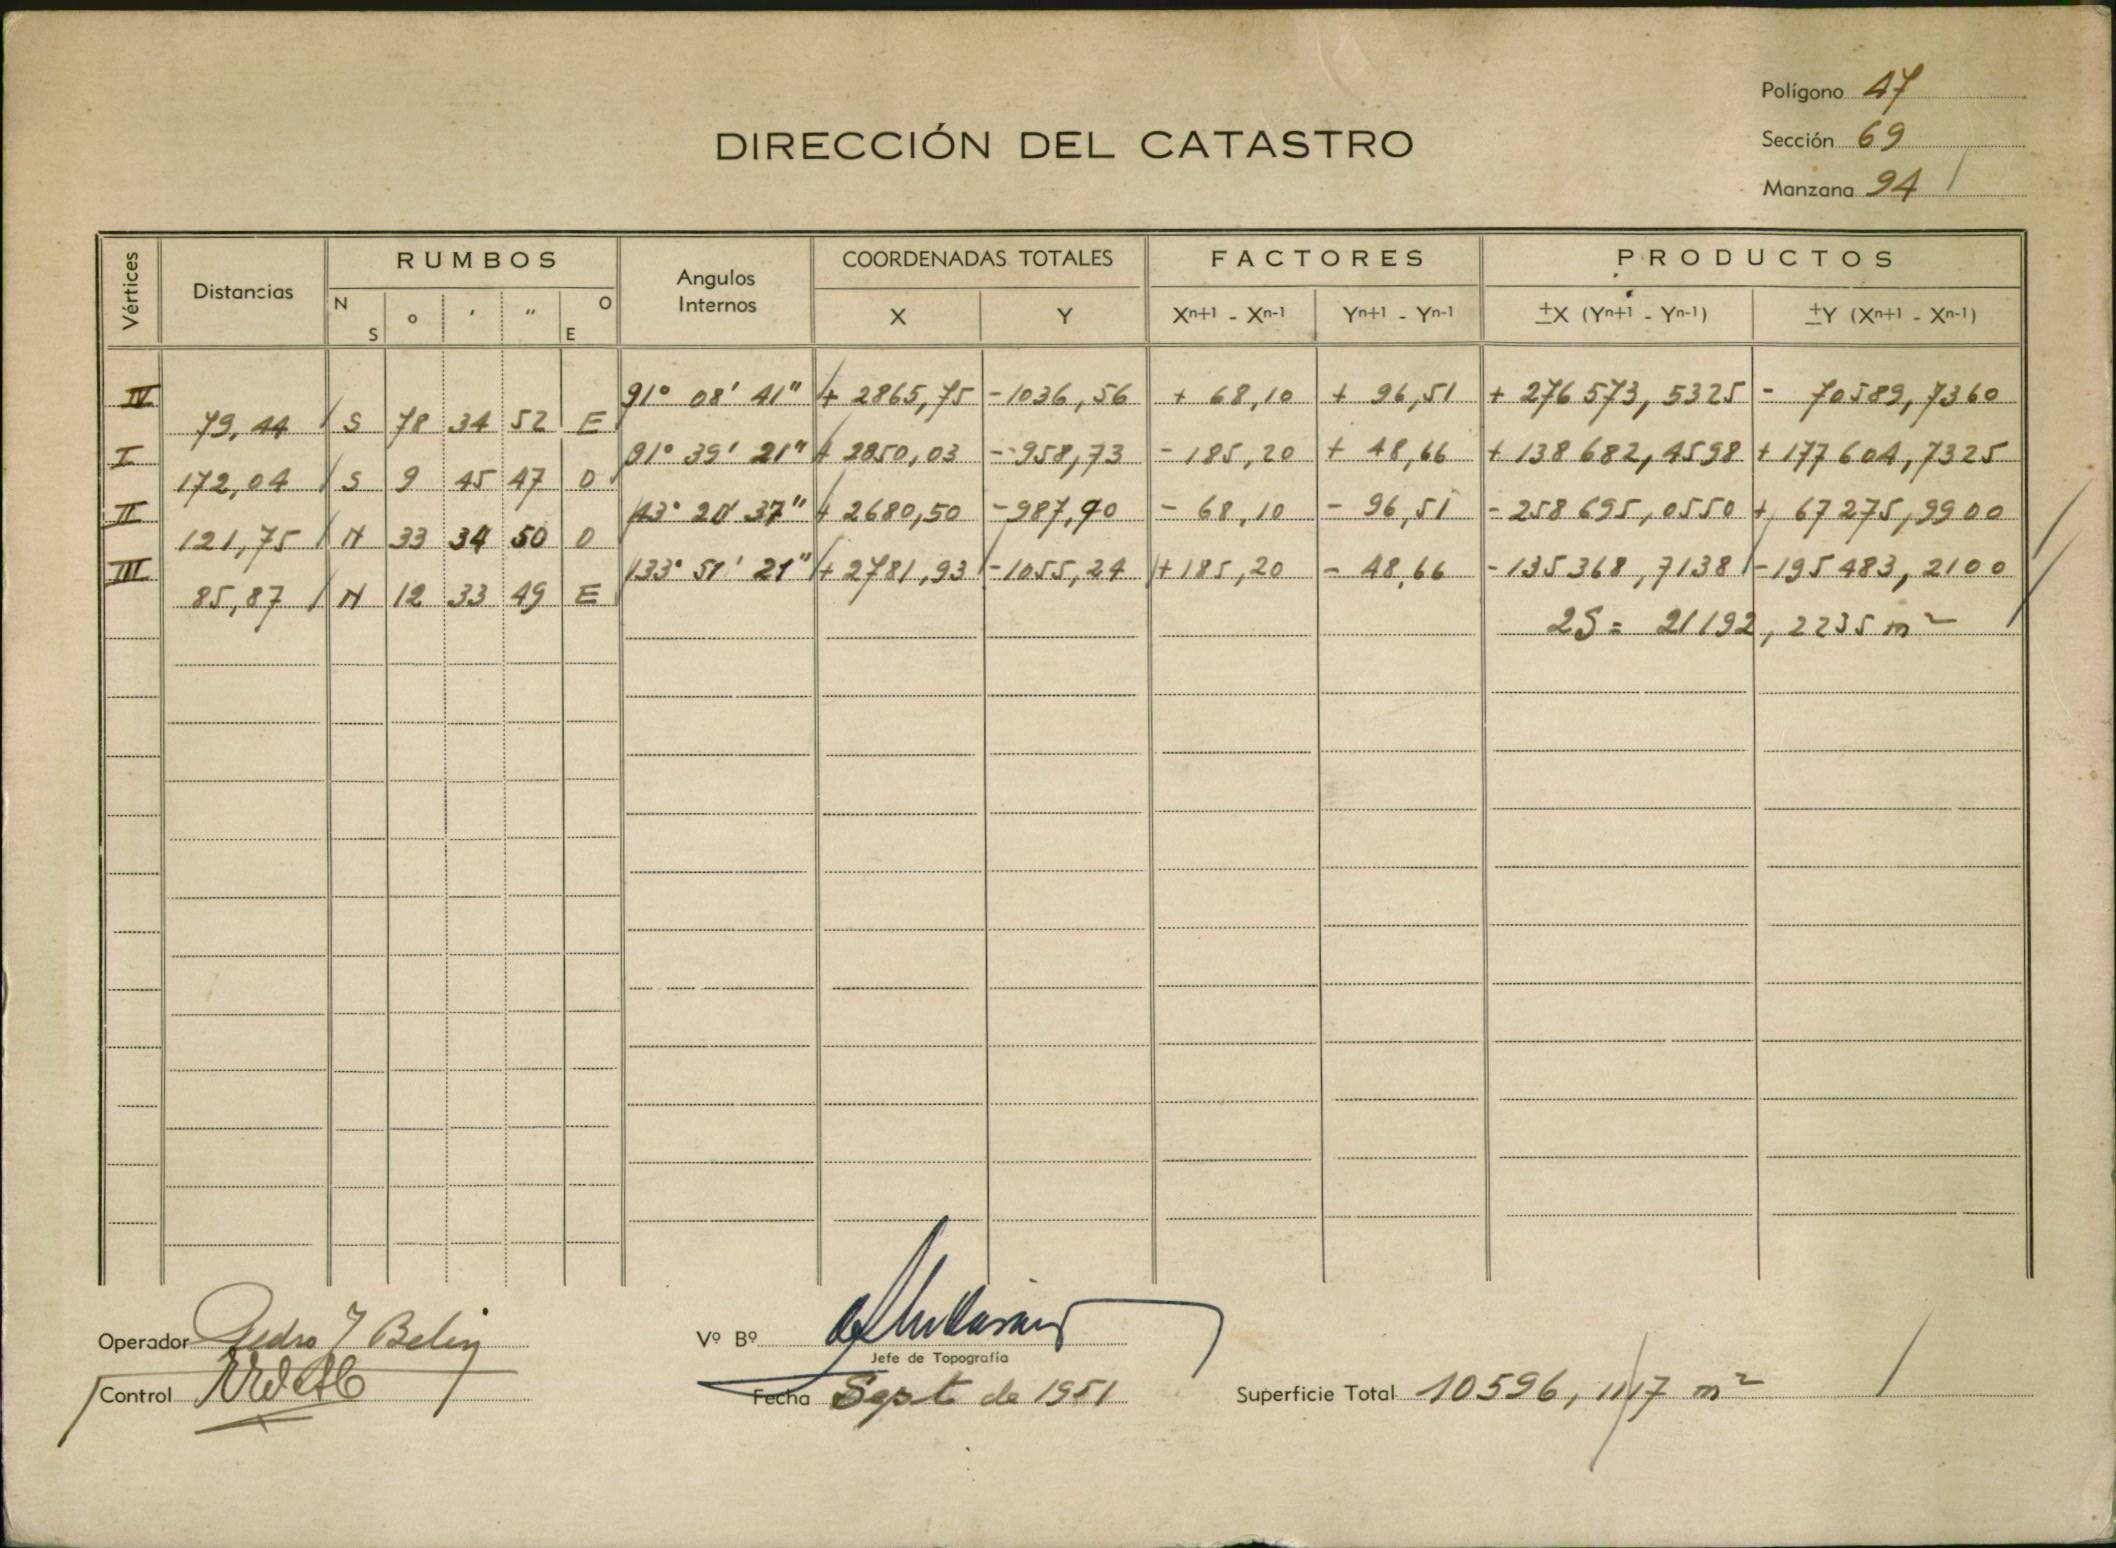 Polígono 47
Sección 69
Manzana 94
DIRECCIÓN DEL CATASTRO
Vértices Distancias RUMBOS Angulos Internos COORDENADAS TOTALES FACTORES PRODUCTOS
N S o ' " O E X Y Xn+1 - Xn-1 Yn+1 - Yn-1 ±X (Yn+1 - Yn-1) ±Y (Xn+1 - Xn-1)
IV 91° 08' 41" + 2865,75 -1036,56 + 68,10 + 96,51 + 276 573, 5325 - 70589,7360
79,44 S 78 34 52 E
I 91° 39' 21" + 2850,03 - 958,73 - 185,20 + 48,66 + 138 682, 4598 + 177 604,7325
172,04 S 9 45 47 O
II 43° 20' 37" + 2680,50 - 987,90 - 68,10 - 96,51 - 258 695, 0550 + 67 275,9900
121,75 N 33 34 50 O
III 133° 51' 21" + 2781,93 -1055,24 + 185,20 - 48,66 - 135 368, 7138 - 195 483, 2100
85,87 N 12 33 49 E
2S = 21192, 2235 m²
Operador Pedro J Belin
Vº Bº
Jefe de Topografía
Control
Fecha Sept de 1951
Superficie Total 10596, 1117 m²